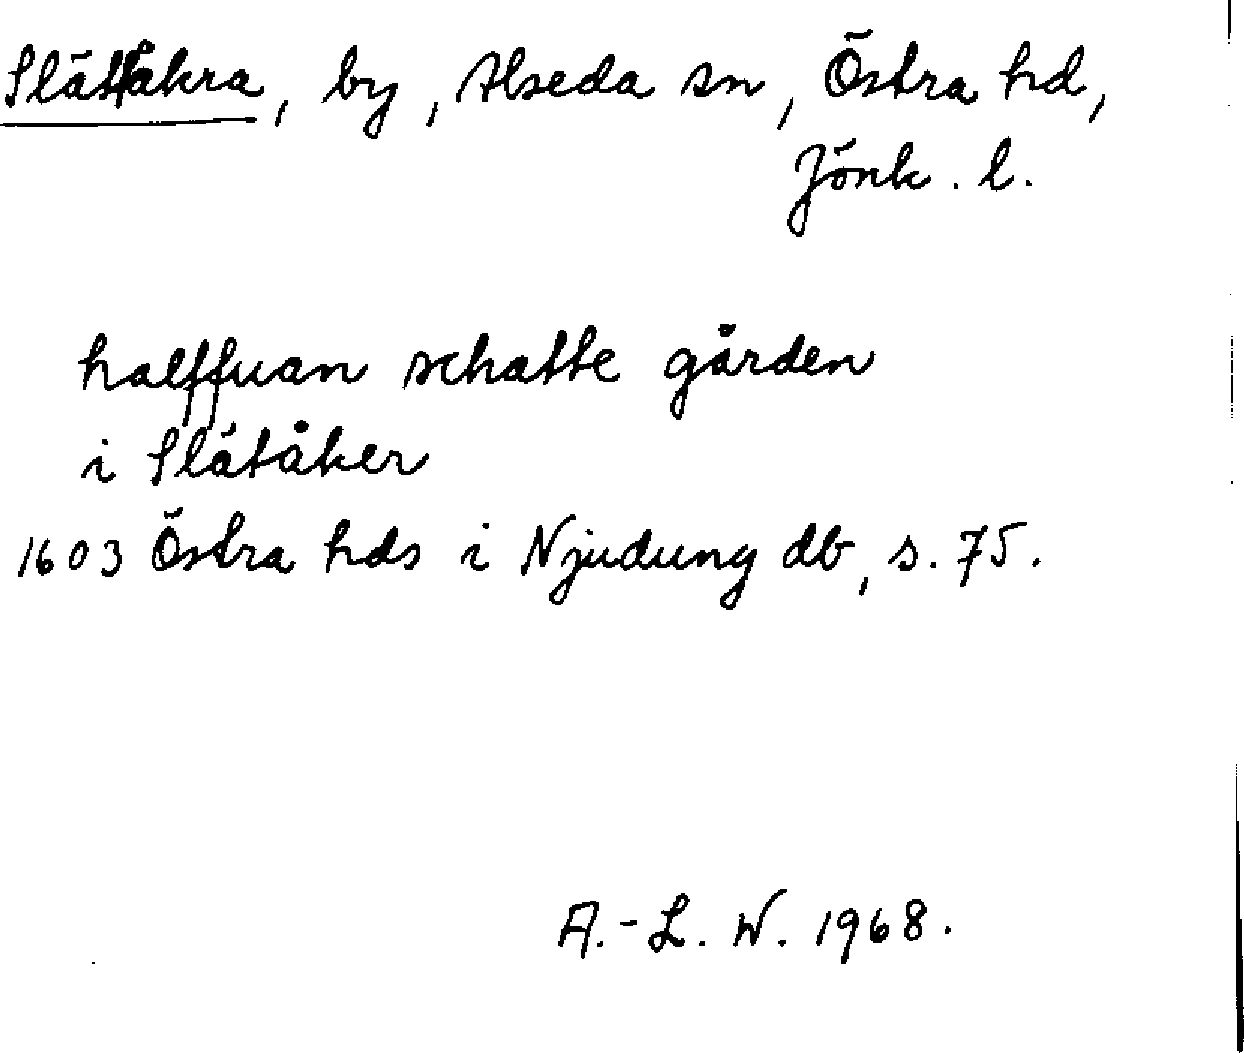 Slättåkra, by, Alseda sn, Östra hd,
Jönk. l.
halffuan schatte gården
i Slätåker
1603 Östra hds i Njudung db, s. 75.
A.-L. W. 1968.